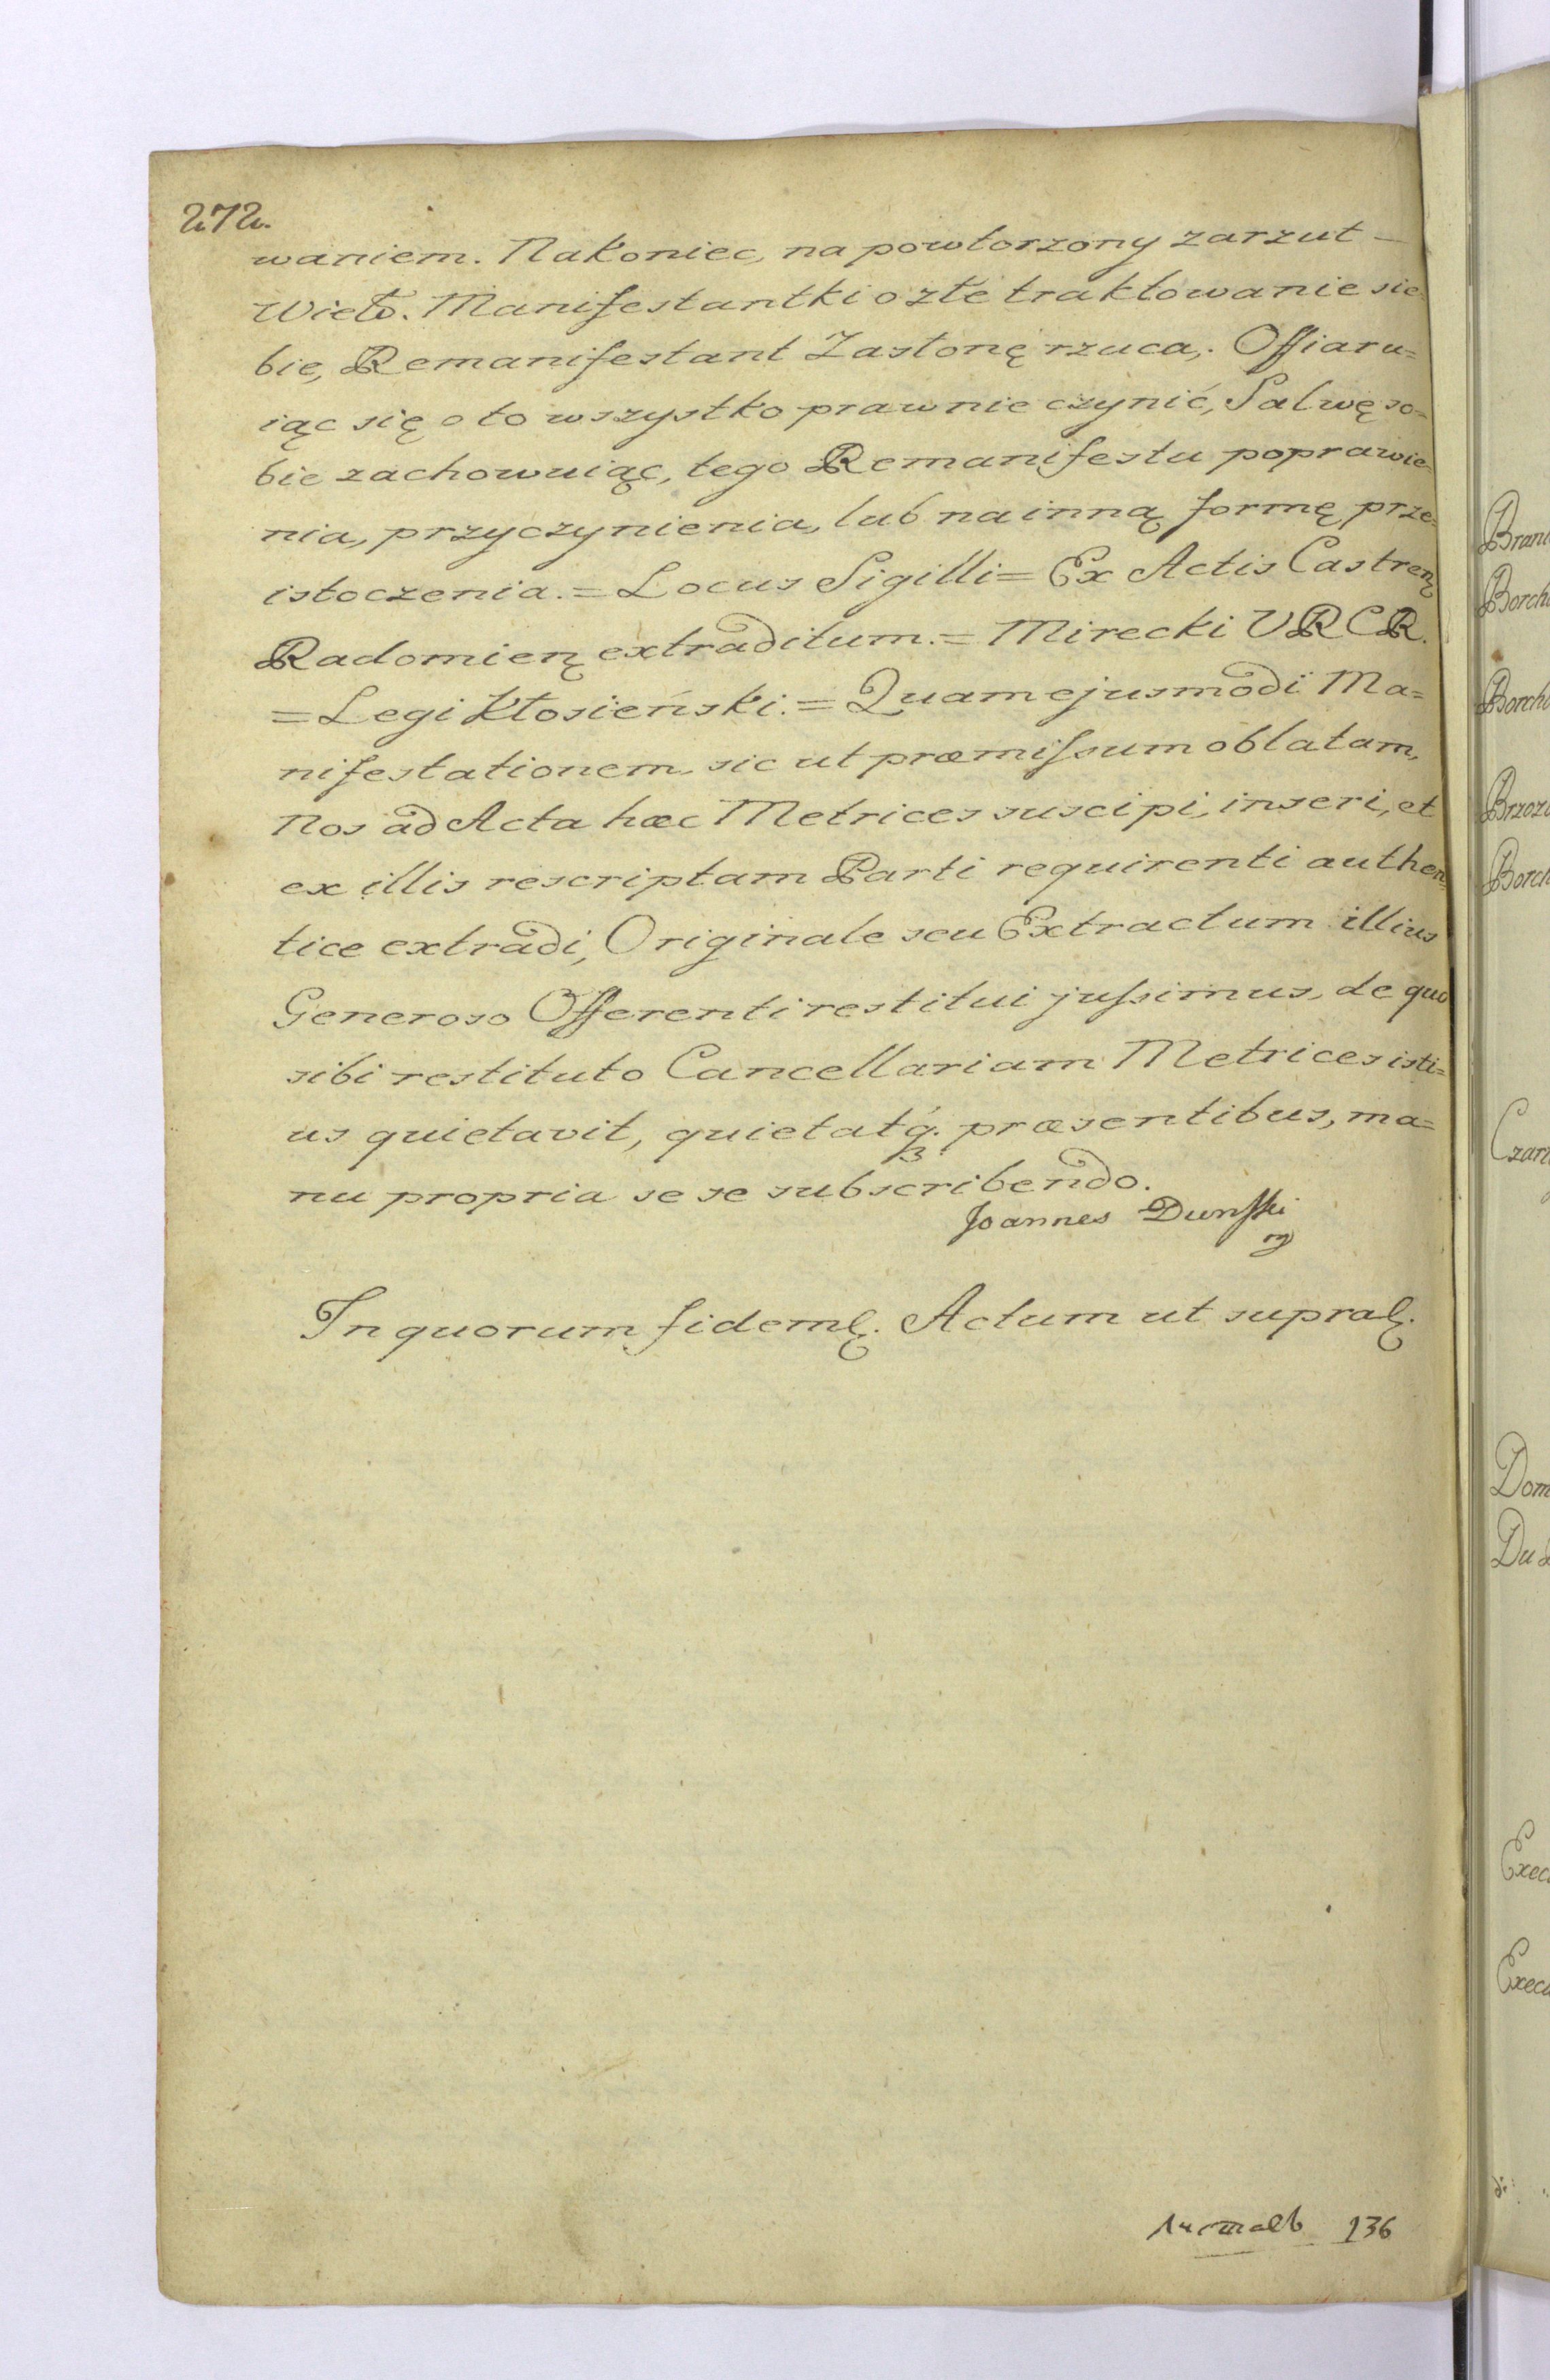 272.
waniem. Nakoniec, na powtorzony zarzut –
Wielo. Manifestantki o złe traktowanie sie=
bie, Remanifestant Zasłonę rzuca,. Offiaru=
iąc się o to wszystko prawnie czynić, Salwę so=
bie zachowuiąc, tego Remanifestu poprawie=
nia, przyczynienia, lub na inną formę prze=
istoczenia. = Locus Sigilli = Ex Actis Castreņ
Radomieņ extraditum. = Mirecki VRCR.
= Legi Kłosieński. = Quam ejusmodi Ma=
nifestationem, sic ut præmissum oblatam,
Nos ad Acta hæc Metrices suscipi, inseri, et
ex illis rescriptam Parti requirenti authen=
tice extradi, Originale seu Extractum illius
Generoso Offerenti restitui jussimus, de quo
sibi restituto Cancellariam Metrices isti=
us quietavit, quietatq́. præsentibus, ma=
nu propria se se subscribendo.
Joannes Dunsski
mp
In quorum fidemꝫ. Actum ut supraꝫ.
136
Brani
Borch
Borch
Brzoz
Borch
Czar
Dom
Du
Exec
Exec